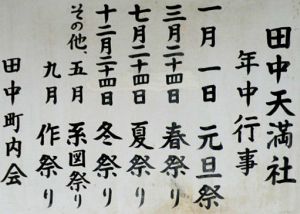 田中天満社
年中行事
一月一日 元旦祭
三月二十四日 春祭り
七月二十四日 夏祭り
十二月二十四日 冬祭り
その他、五月 系図祭り
九月 作祭り
田中町内会